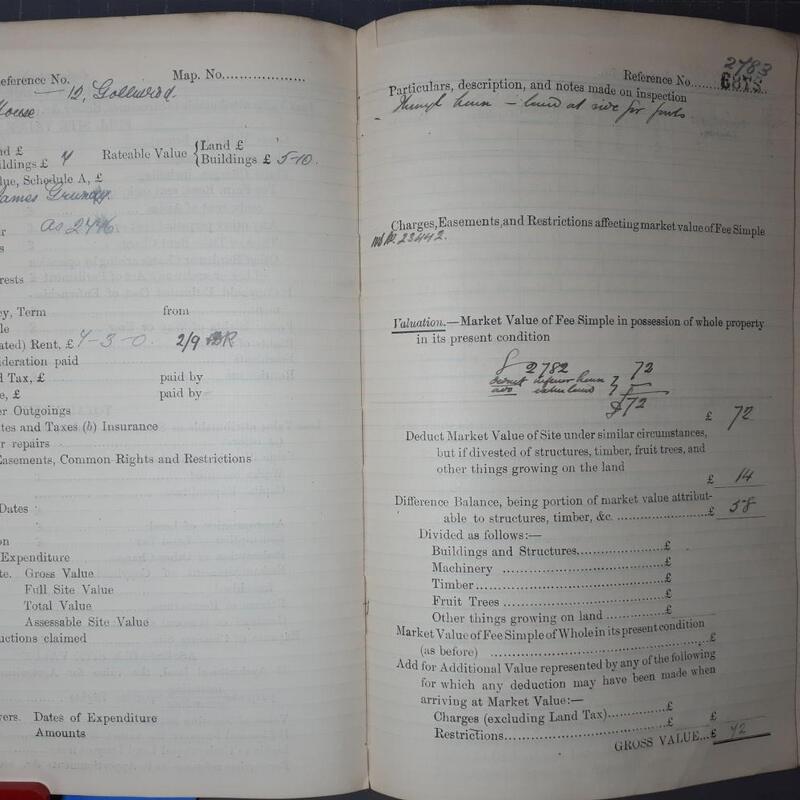 eference No. Map. No..................
— 12, Gollinrod
House
nd £
ildings £ 7 Rateable Value { Land £
Buildings £ 5-10.
lue, Schedule A, £
ames Grundy
r as 2776
s
rests
cy, Term from
le
ated) Rent, £ 7-3-0. 2/9
ideration paid
d Tax, £ paid by
e, £ paid by
er Outgoings
tes and Taxes (b) Insurance
r repairs
Easements, Common Rights and Restrictions
Dates
on
Expenditure
te. Gross Value
Full Site Value
Total Value
Assessable Site Value
uctions claimed
vers. Dates of Expenditure
Amounts
2783
Reference No.
Particulars, description, and notes made on inspection
- Through house – land at side for
Charges, Easements, and Restrictions affecting market value of Fee Simple
23442.
Valuation.—Market Value of Fee Simple in possession of whole property
in its present condition
£ 2782 72
deduct inferior house }
add extra land }
£72
£ 72
Deduct Market Value of Site under similar circumstances,
but if divested of structures, timber, fruit trees, and
other things growing on the land
£ 14
Difference Balance, being portion of market value attribut-
able to structures, timber, &c. ........................£ 58
Divided as follows:—
Buildings and Structures......................£
Machinery ........................................£
Timber..............................................£
Fruit Trees ........................................£
Other things growing on land ...............£
Market Value of Fee Simple of Whole in its present condition
(as before) ..................................................£
Add for Additional Value represented by any of the following
for which any deduction may have been made when
arriving at Market Value:—
Charges (excluding Land Tax)...............£
Restrictions........................................£ £
GROSS VALUE...£ 72